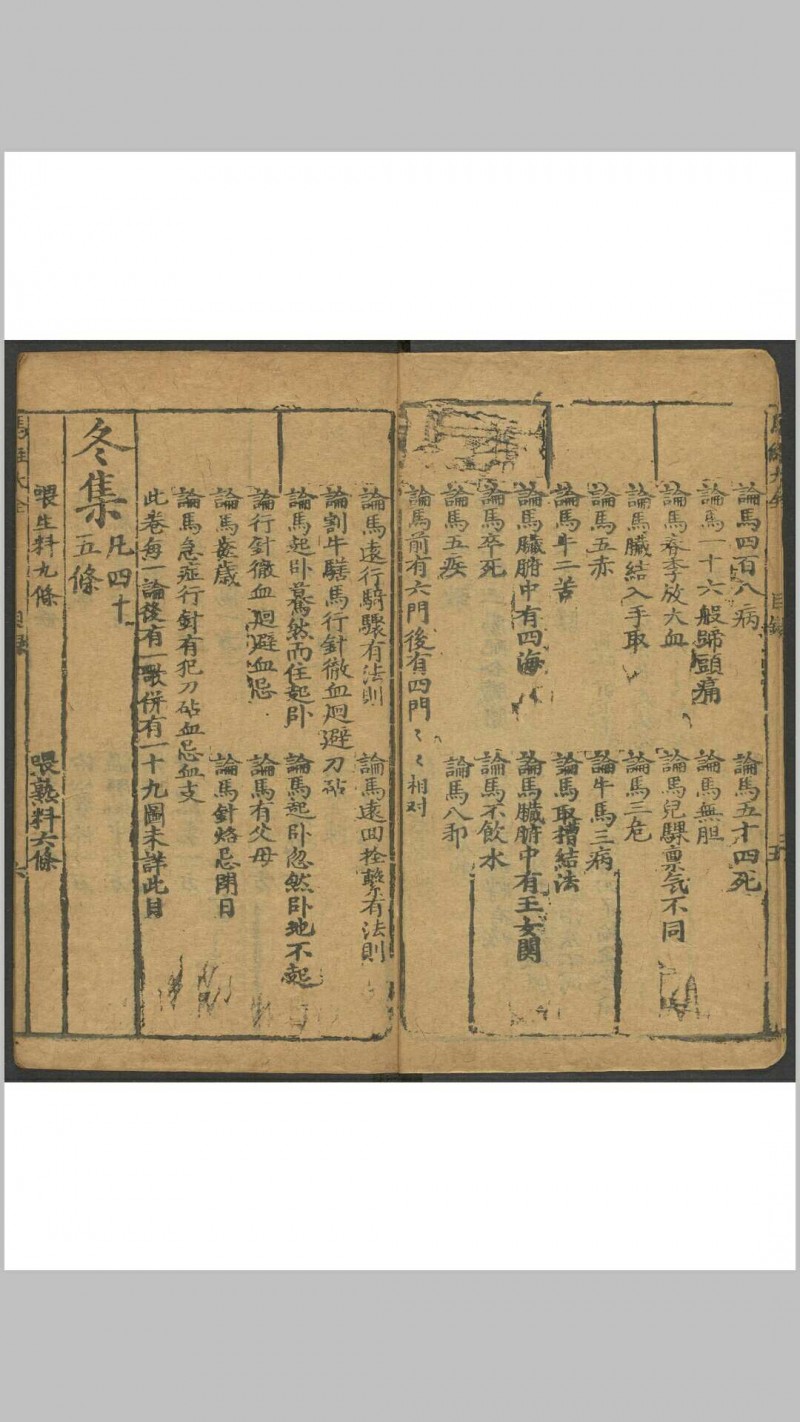 論馬四百八病
論馬五十四死
論馬一十六般歸頭痛
論馬無胆
論馬春季放大血
論馬兒騍稟気不同
論馬臓結入手取
論馬三危
論馬五赤
論牛馬三病
論馬牛二苦
論馬取𢷾結法
論馬臓腑中有四海
論馬臓腑中有王女関
論馬卒死
論馬不飲水
論馬五疾
論馬八邪
論馬前有六門後有四門相对
論馬遠行騎驟有法則
論馬遠回拴繫有法則
論割牛騸馬行針徹血廻避刀砧
論馬起卧驀然而住起卧
論馬起卧忽然卧地不起
論行針徹血廻避血忌
論馬有父母
論馬歯歳
論馬針烙忌閉日
論馬急症行針有犯刀砧血忌血支
此卷每一論後有一歌併有一十九圖未詳此目
冬集
凡四十
五條
喂生料九條
喂熟料六條
目錄